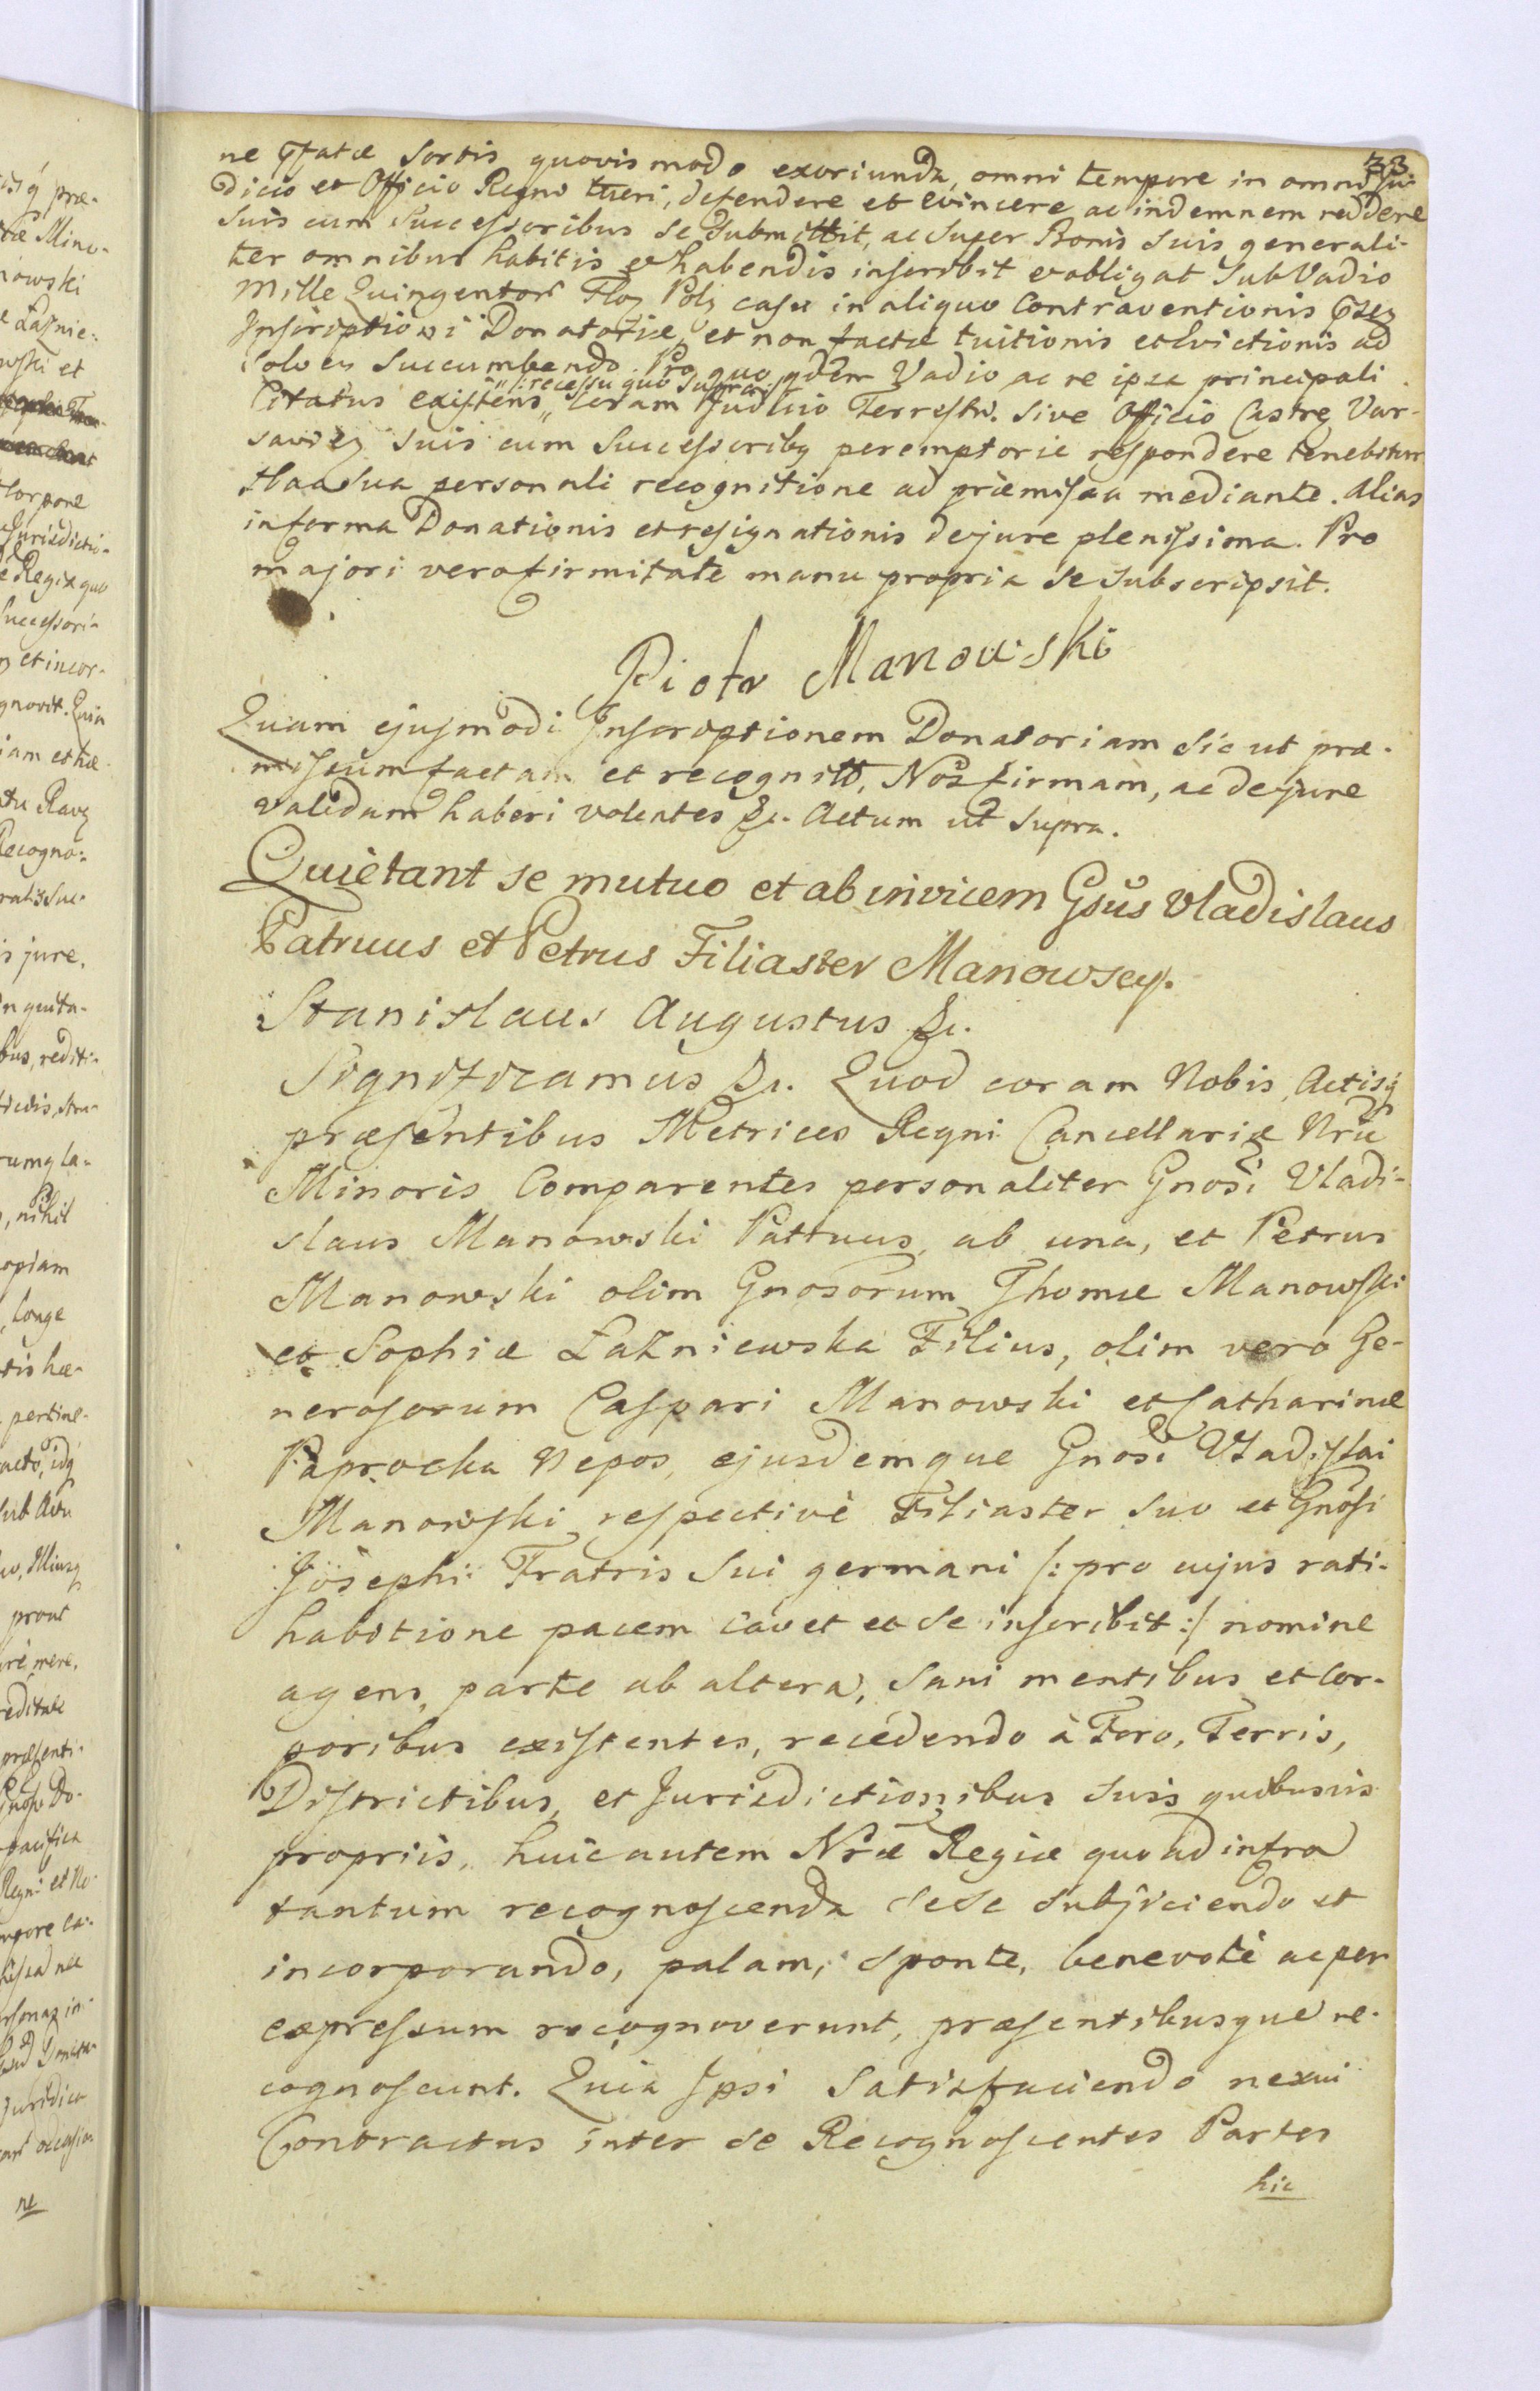 33
ne pfatæ Sortis quovis modo exoriunda, omni tempore in omni Ju-
dicio et Officio Regni tueri, defendere et evincere ac indemnem reddere
suis cum Successoribus se submittit, ac super Bonis suis generali-
ter omnibus habitis et habendis inscribit et obligat sub Vadio
Mille Quingentor Flor Polz casu in aliquo Contraventionis
Inscriptioni Donatoriæ, et non factæ tuitionis et evictionis ad
solven succumbendo. Pro quo qdem Vadio ac re ipsa principali
Citatus existens /: recessu quo supra :/ Coram Judicio Terrestri sive Officio Castrz Var-
savien suis cum Successoribz peremptorie respondere tenebitur
sua personali recognitione ad præmissa mediante. Alias
in forma Donationis et resignationis de jure plenissima. Pro
majori vero firmitate manu propria se subscripsit.
Piotr Manowski
Quam ejusmodi Inscriptionem Donatoriam sic ut præ-
missum factam et recognitt, Nos firmam, ac de jure
validam haberi volentes &c. Actum ut supra.
Quietant se mutuo et ab invicem Gsus Vladislaus
Patruus et Petrus Filiaster Manowscy.
Stanislaus Augustus &c.
Significamus &c. Quod coram Nobis, Actisq
præsentibus Metrices Regni Cancellariæ Nræ
Minoris Comparentes personaliter Gnosi Vladi-
slaus Manowski Patruus, ab una, et Petrus
Manowski olim Gnosorum Thomæ Manowski
et Sophiæ Łaźniewska Filius, olim vero Ge-
nerosorum Caspari Manowski et Catharinæ
Paprocka Nepos, ejusdemque Gnosi Vladislai
Manowski respectivè Filiaster suo et Gnosi
Josephi Fratris sui germani /: pro cujus rati-
habitione pacem cavet et se inscribit :/ nomine
agens, parte ab altera, Sani mentibus et Cor-
poribus existentes, recedendo à Foro, Terris,
Districtibus, et Jurisdictionibus suis quibusvis
propriis, huic autem Nræ Regiæ quo ad infra
tantum recognoscenda sese subjiciendo et
incorporando, palam, sponte, benevolè ac per
expressum recognoverunt, præsentibusque re-
cognoscunt. Quia Ipsi Satisfaciendo nexui
Contractus inter se Recognoscentes Partes
hic